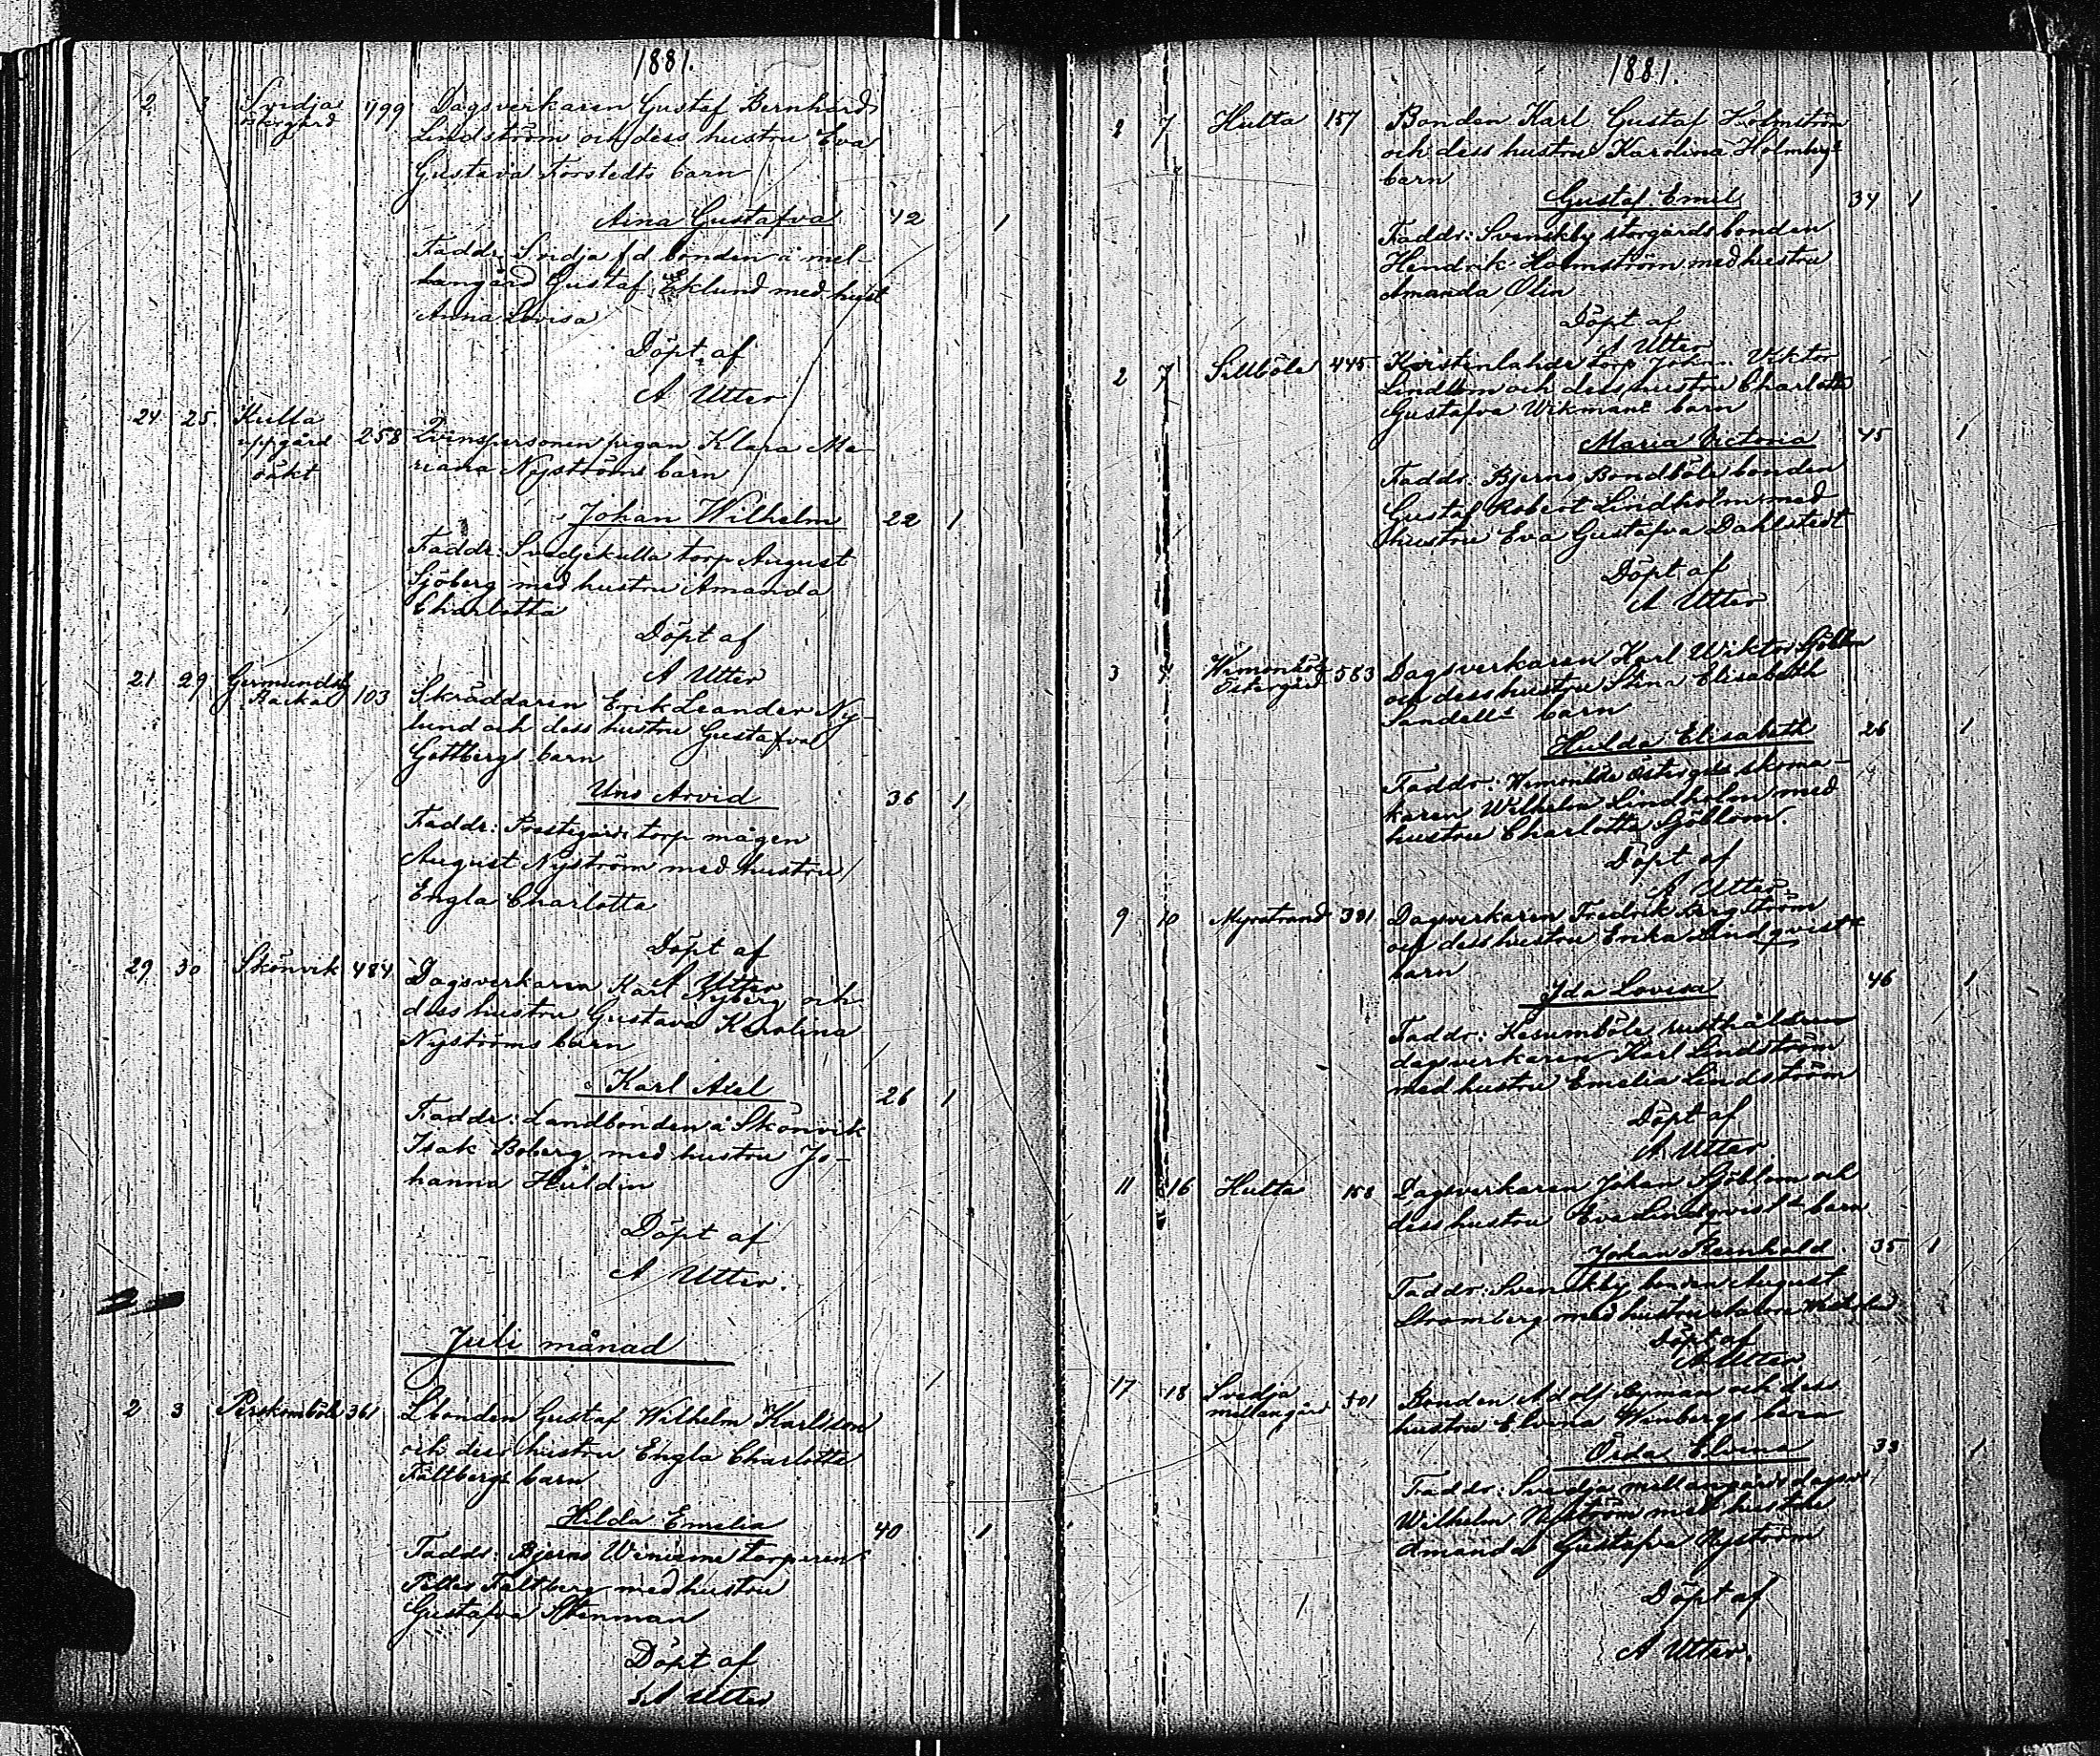 1881.
2 3 Svidja östergård 499 Dagsverkaren Gustaf Bernhard
Lindström och dess hustru Eva
Gustava Forstedts barn
Aina Gustafva 42 1
Faddr: Svidja f d bonden å mel-
langård Gustaf Eklund med hust
Anna Lovisa
Döpt af
A Utter
24 25. Kulla uppgård oäkt 258 Qvinspersonen pigan Klara Ma-
riana Nyströms barn
Johan Wilhelm 22 1
Faddr: Svedjekulla torp August
Sjöberg med hustru Amanda
Charlotta
Döpt af
A Utter
21 29 Germundsby Backas 103 Skräddaren Erik Leander Ny-
lund och dess hustru Gustafva
Gottbergs barn
Uno Arvid 36 1
Faddr: Prestegårds torp mågen
August Nyström med hustru
Engla Charlotta
Döpt af
A Utter
29 30 Skönvik 484 Dagsverkaren Karl Nyberg och
dess hustru Gustava Karolina
Nyströms barn
Karl Axel 26 1
Faddr: Landbonden å Skönvik
Isak Boberg med hustru Jo-
hanna Huldin
Döpt af
A Utter.
Juli månad
2 3 Perskomböle 361 Lbonden Gustaf Wilhelm Karlsson
och dess hustru Engla Charlotta
Fältbergs barn
Hilda Emelia 40 1
Faddr: Bjerns torparen
Fältberg med hustru
Gustafva Stenman
Döpt af
A Utter
1881.
2 7 Hulta 157 Bonden Karl Gustaf Holmström
och dess hustru Karolina Holmbergs
barn
Gustaf Emil 34 1
Faddr: Svenskby storgårdsbonden
Hendrik Holmström med hustru
Amanda Olin
Döpt af
A Utter
2 7 Sillböle 445 torp Johan Viktor
Lindblom och dess hustru Charlotta
Gustafva Wikmans barn
Maria Victoria 45 1
Faddr: Bjerns Bondböle bonden
Gustaf Robert Lindholm med
hustru Eva Gustafva Dahlstedt
Döpt af
A Utter
3 7 Wimonböle Östergård 583 Dagsverkaren Karl Wiktor Sjöblom
och dess hustru Stina Elisabeth
Sandells barn
Hulda Elisabeth 26 1
Faddr: Wimonböle östergårds skoma-
karen Wilhelm Lindholm med
hustru Charlotta Sjöblom.
Döpt af
A Utter
9 10 Myrstrand 381 Dagsverkaren Fredrik Bergström
och dess hustru Erika Lindqvists
barn
Ida Lovisa 46 1
Faddr: Kasumböle rusthållun
dagsverkaren Karl Lindström
med hustru Emelia Lindström
Döpt af
A Utter.
11 16 Hulta 158 Dagsverkaren Johan Sjöblom och
dess hustru Eva Lindqvists barn
Johan Reinhold 35 1
Faddr: Svenskby bonden August
Stromberg med hustru
Döpt af
A Utter
17 18 Svidja mellangård 501 Bonden Adolf Nyman och dess
hustru Elvina Winbergs barn
Elvina 33 1
Faddr: Svidja mellangårds dagsv
Wilhelm Nyström med hustru
Amanda Gustafva Nyström
Döpt af
A Utter.